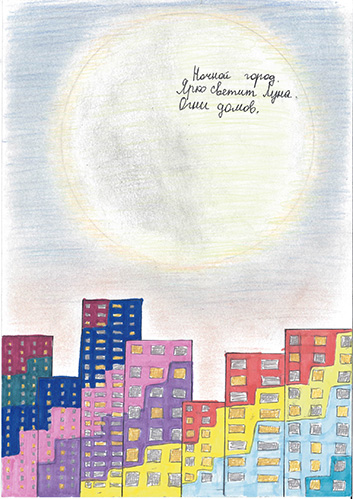 Ночной город.
Ярко светит Луна.
Огни домов.